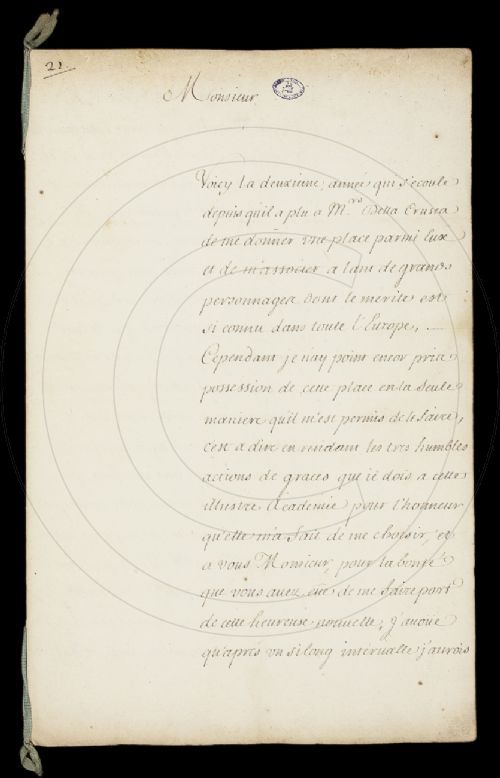 21
Monsieur
Voicy la deuxieme année qui s'ecoule
depuis qu'il a plu a M.rs Della Crusca
de me donner une place parmi Eux
et de m'associer a tant de grands
personnages dont le merite est
si connu dans toute l'Europe,
Cependant je n'ay point encor pris
possession de cette place en la seule
maniere qu'il m'est permis de le faire,
c'est a dire en rendant les tres humbles
actions de graces que ie dois a cette
illustre Academie pour l'honneur
qu'elle m'a fait de me choisir, et
a vous Monsieur, pour la bonté
que vous avez eüe de me faire part
de cette heureuse nouvelle; j'avoüe
qu'aprés un si long intervalle j'aurois